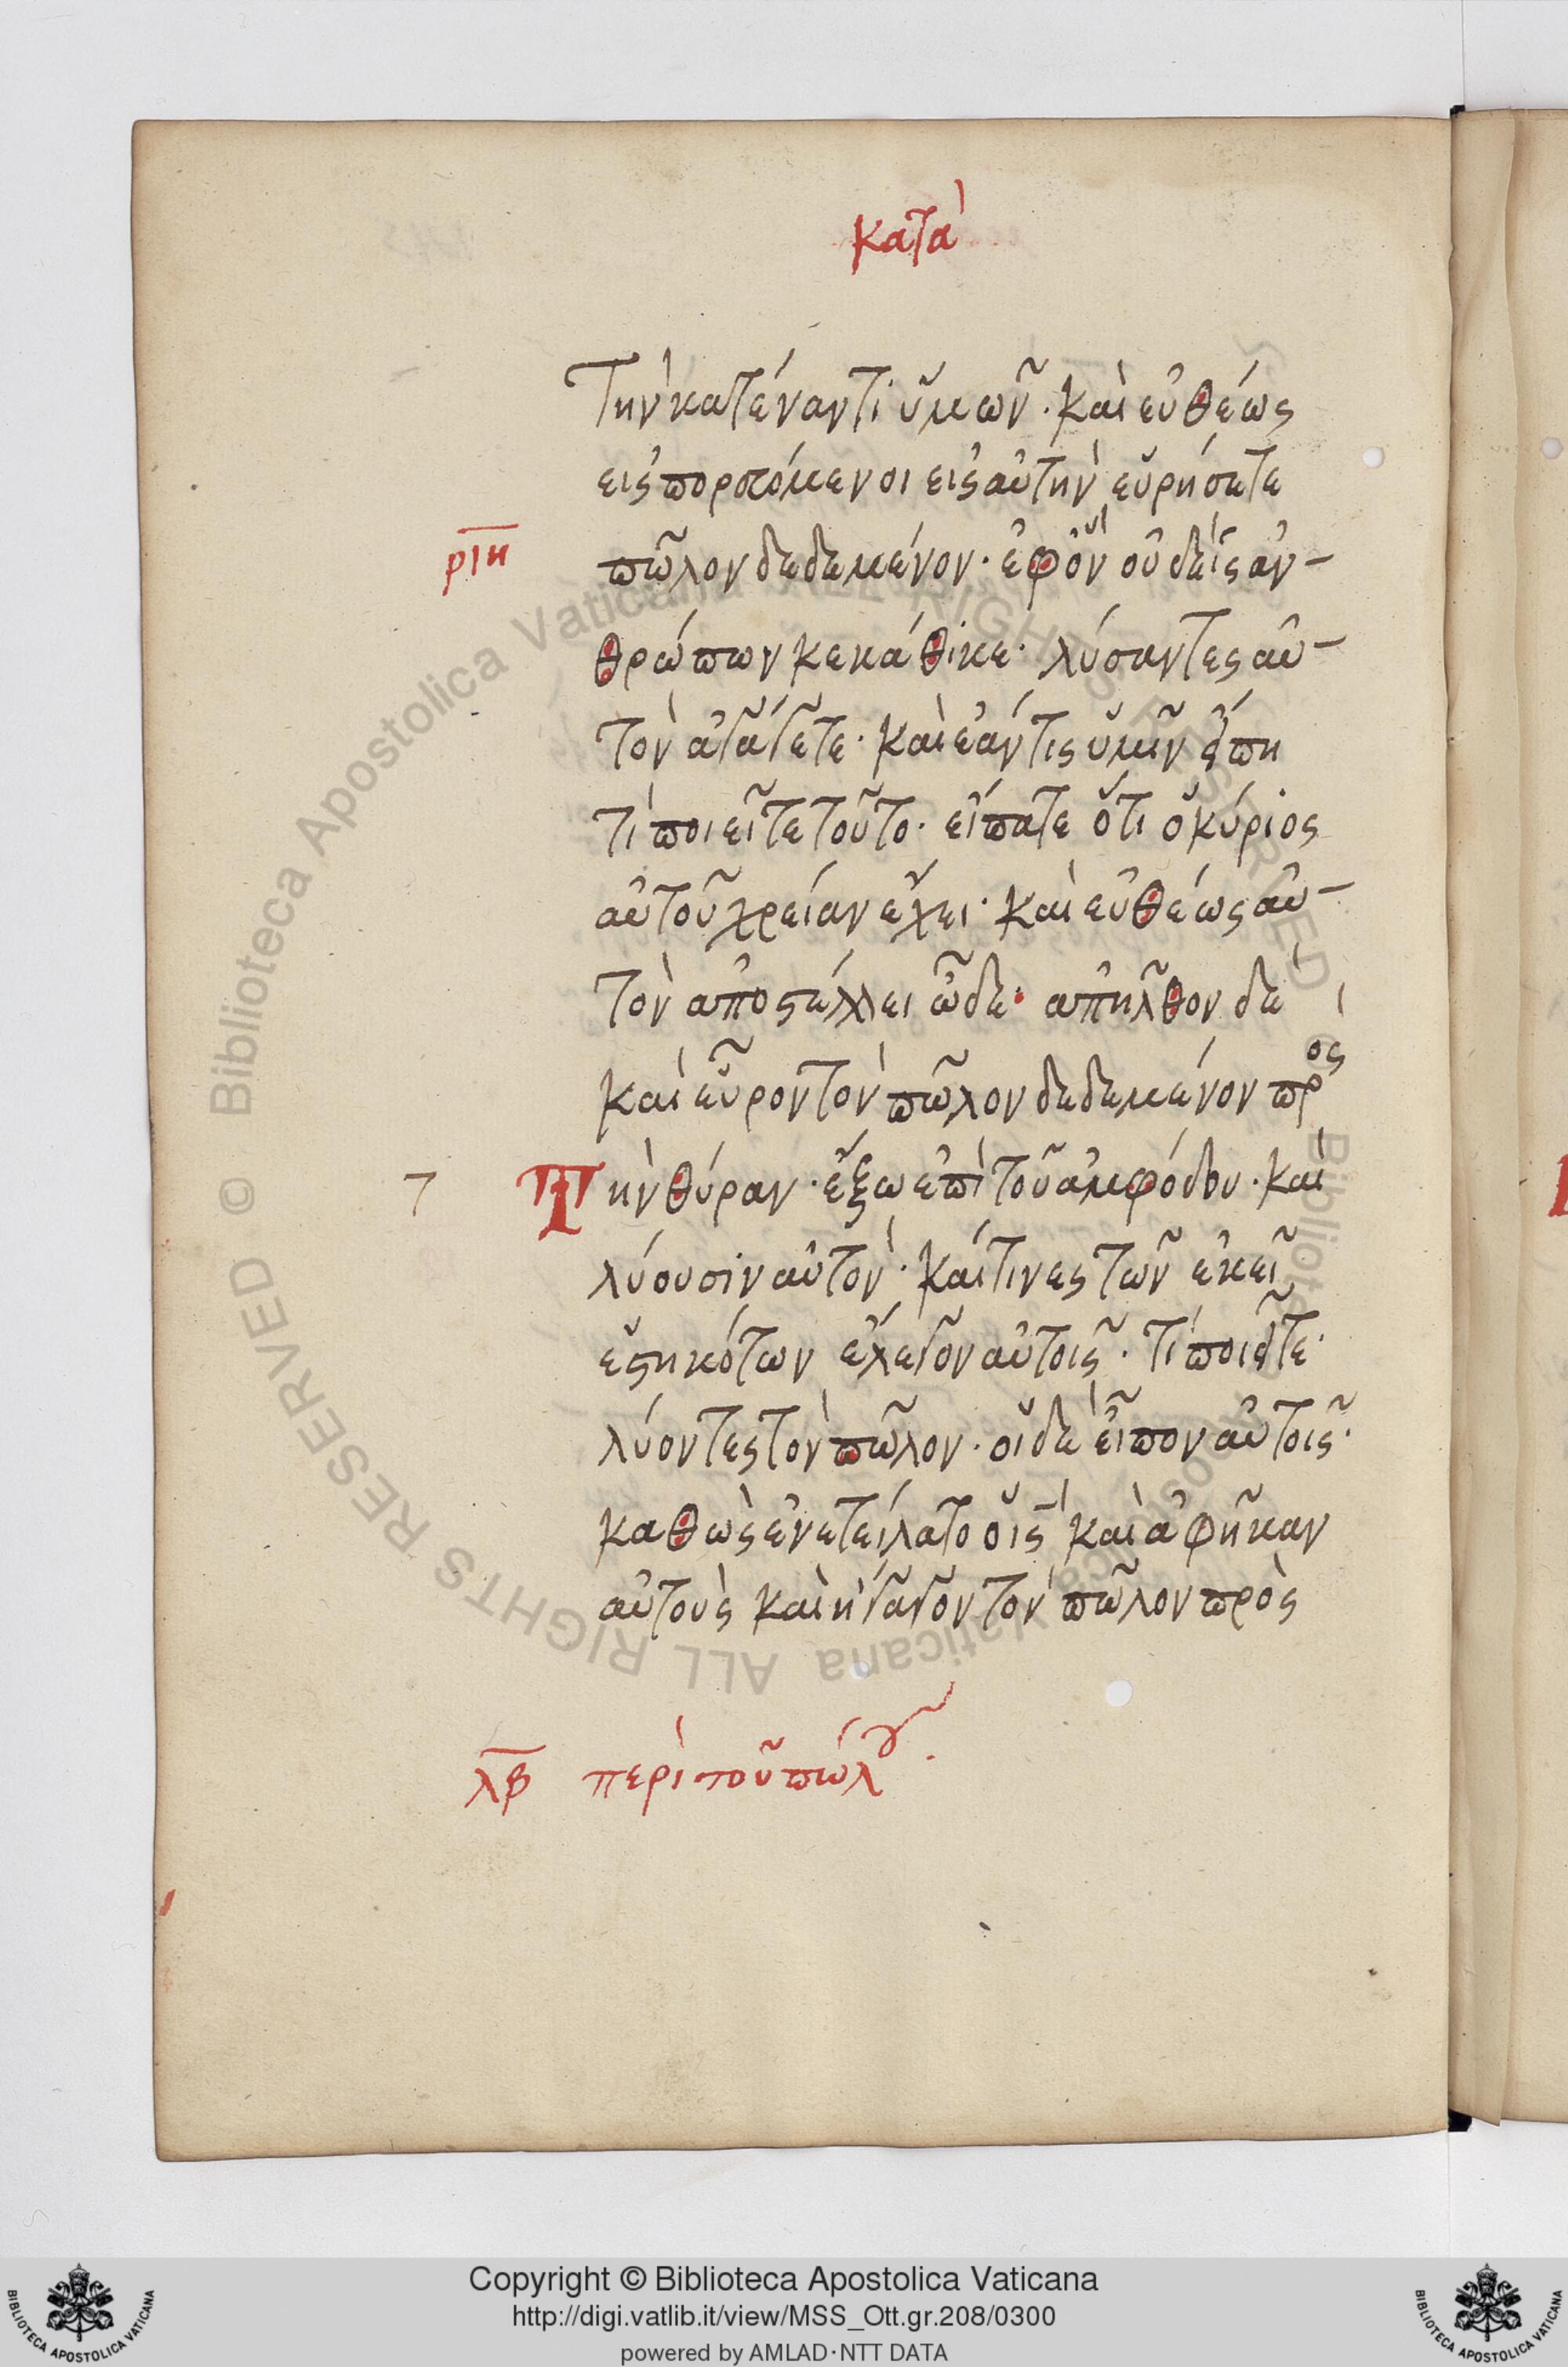 κατὰ
τὴν κατέναντι ὑμῶν · καὶ εὐθέως
εἰσπορευόμενοι εἰς αὐτὴν εὑρήσετε
ριη
πῶλον δεδεμένον · ἐφ ὃν οὐδεὶς ἀν-
θρώπων κεκάθικε · λύσαντες αὐ-
τὸν ἀγάγετε · καὶ ἐάν τις ὑμῖν εἴπη
τί ποιεῖτε τοῦτο · εἴπατε ὅτι ὁ κύριος
αὐτοῦ χρείαν ἔχει · καὶ εὐθέως αὐ-
τὸν ἀποστέλλει ὧδε · ἀπῆλθον δὲ
καὶ εὗρον τὸν πῶλον δεδεμένον πρὸς
τ
Τὴν θύραν · ἔξω ἐπὶ τοῦ ἀμφόδου · καὶ
λύουσιν αὐτὸν · καί τινες τῶν ἐκεῖ
ἑστηκότων ἔλεγον αὐτοῖς · τί ποιεῖτε ·
λύοντες τὸν πῶλον · οἱ δὲ εἶπον αὐτοῖς ·
καθὼς ἐνετείλατο ὁ ις καὶ ἀφῆκαν
αὐτοὺς καὶ ἤγαγον τὸν πῶλον πρὸς
λβ περὶ τοῦ πώλου ·
Biblioteca Apostolica Vaticana ALL RIGHTS RESERVED
Biblioteca Apostolica Vaticana ALL RIGHTS RESERVED ©
Copyright © Biblioteca Apostolica Vaticana
http://digi.vatlib.it/view/MSS_Ott.gr.208/0300
powered by AMLAD·NTT DATA
BIBLIOTECA APOSTOLICA VATICANA
BIBLIOTECA APOSTOLICA VATICANA